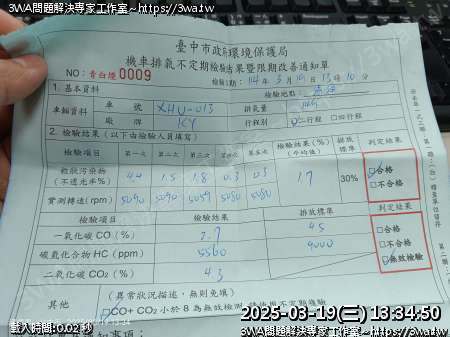 3WA問題解決專家工作室~https://3wa.tw
臺中市政府環境保護局
機車排氣不定期檢驗結果暨限期改善通知單
NO：青白煙0009
檢驗日期：114年3月19日13時10分
1. 基本資料
檢驗地點：
車輛資料 車號 XHU-013 排氣量
廠牌 KY 行程別 二行程 □四行程
2. 檢驗結果（以下由檢驗人員填寫）
檢驗項目 第一次 第二次 第三次 第四次 第五次 檢驗結果(%)(平均值) 排放標準 判定結果
粒狀污染物(不透光率%) 4.4 1.5 1.8 0.3 0.5 1.7 30% 合格 □不合格
實測轉速(rpm) 5090 5090 5059 5080 5090
檢驗項目 檢驗結果 排放標準 判定結果
一氧化碳CO(%) 2.7 4.5 □合格
碳氫化合物HC(ppm) 5560 9000 □不合格
二氧化碳CO₂(%) 4.3 無效檢驗
其他 (異常狀況描述，無則免填)
CO+CO₂小於8為無效檢測
2025-03-19(三) 13:34:50
載入時間:0.02 秒
3WA問題解決專家工作室~https://3wa.tw